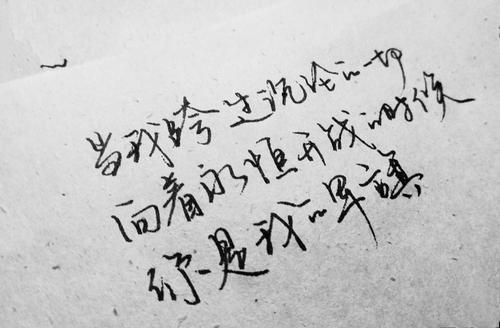 当我跨过沉沦的一切
向着永恒开战的时候
你是我的军旗